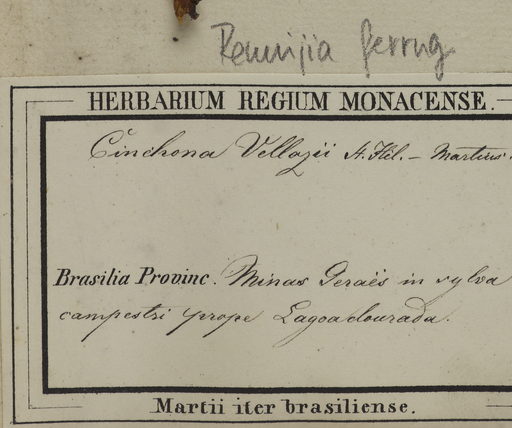 Remijia ferrug
HERBARIUM REGIUM MONACENSE.
Cinchona Vellozii St. Hil. – Martius.
Brasilia Provinc. Minas Geraës in sylva
campestri prope Lagoa dourada.
Martii iter brasiliense.